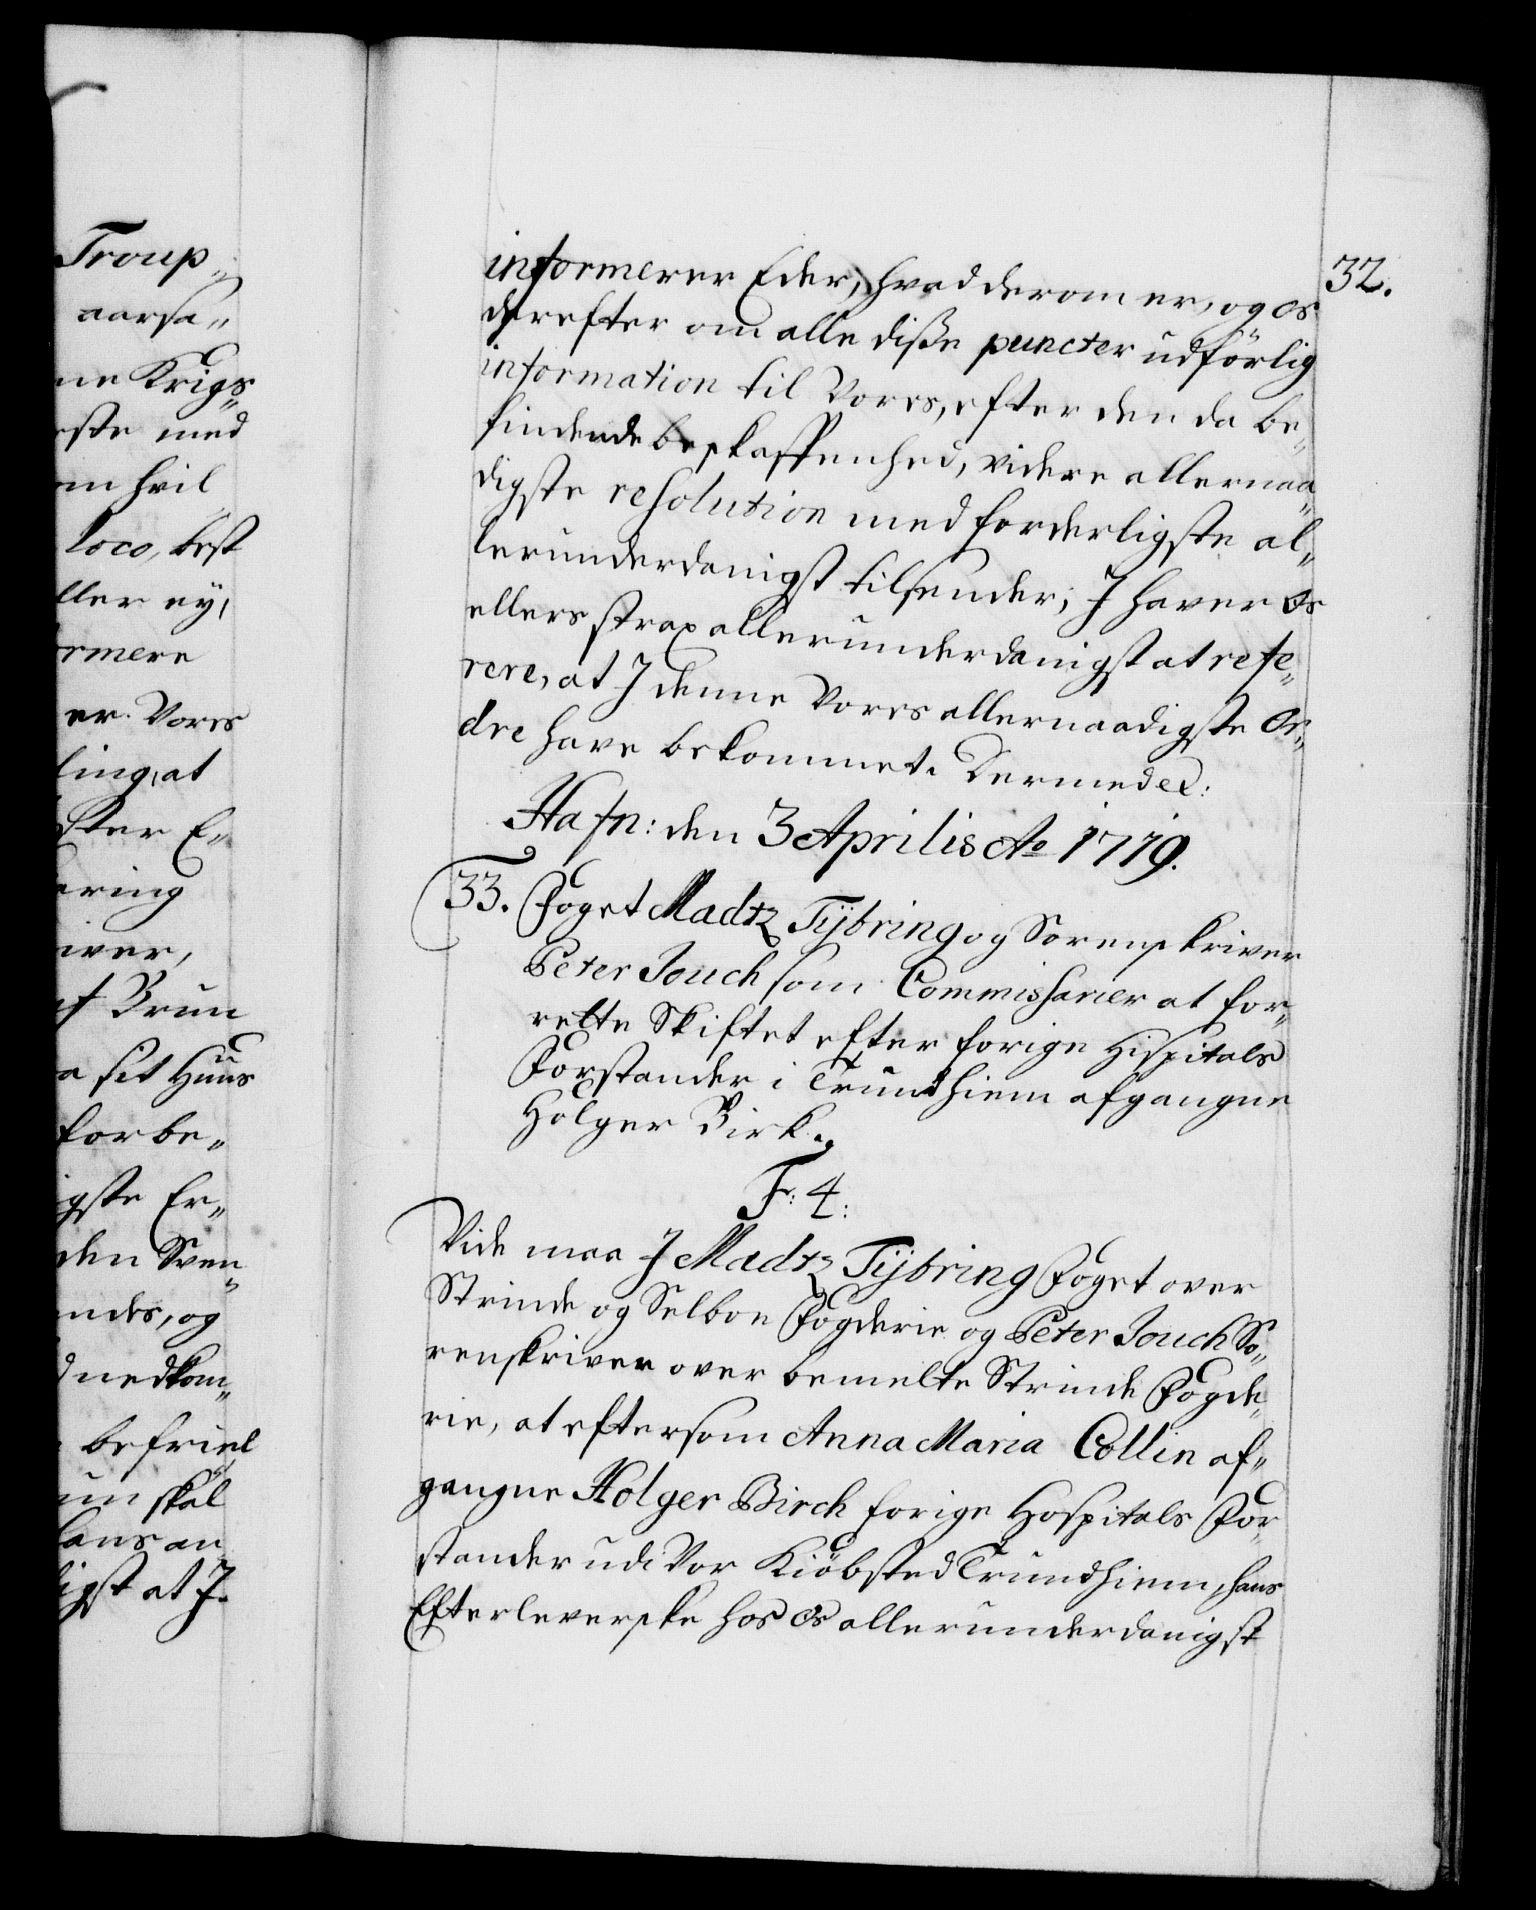 Troup„
aarsa„
ne Krigs„
rste med
en hvil
loco, best
ller ey,
ormere
er. Vores
ling, at
ster E„
ering
iver,
f Brun
a sit Huus
forbe„
igste Er„
den Sven„
ndes, og
nedkom„
befriel„
un skal
hans an„
igst at J.
32.
informerer Eder, hvad derom er, og os
derefter om alle disse puncter udförlig
information til Vores, efter den da be„
findende beskaffenhed, videre allernaa„
digste resolution med forderligste al„
lerunderdanigst tilsender; J haver os
ellers strax allerunderdanigst at refe„
rere, at J denne Vores allernaadigste Or„
dre have bekommet. Dermed ec:
Hafn: den 3 Aprilis Ao 1719.
33. Foget Madtz Tÿbring og Sorenskriver
Peter Jouch som Commissarier at for„
rette Skiftet efter forige Hispitals
Forstander i Trundhiem afgangne
Holger Birk.
F: 4:
Vide maa J Madtz Tÿbring Foget over
Strinde og Selboe Fogderie og Peter Jouch So„
renskriver over bemelte Strinde Fogde„
rie, at eftersom Anna Maria Collin af„
gangne Holger Birch forige Hospitals For„
stander udi Vor Kiöbsted Trundhiem, hans
Efterleverske hos Os allerunderdanigst